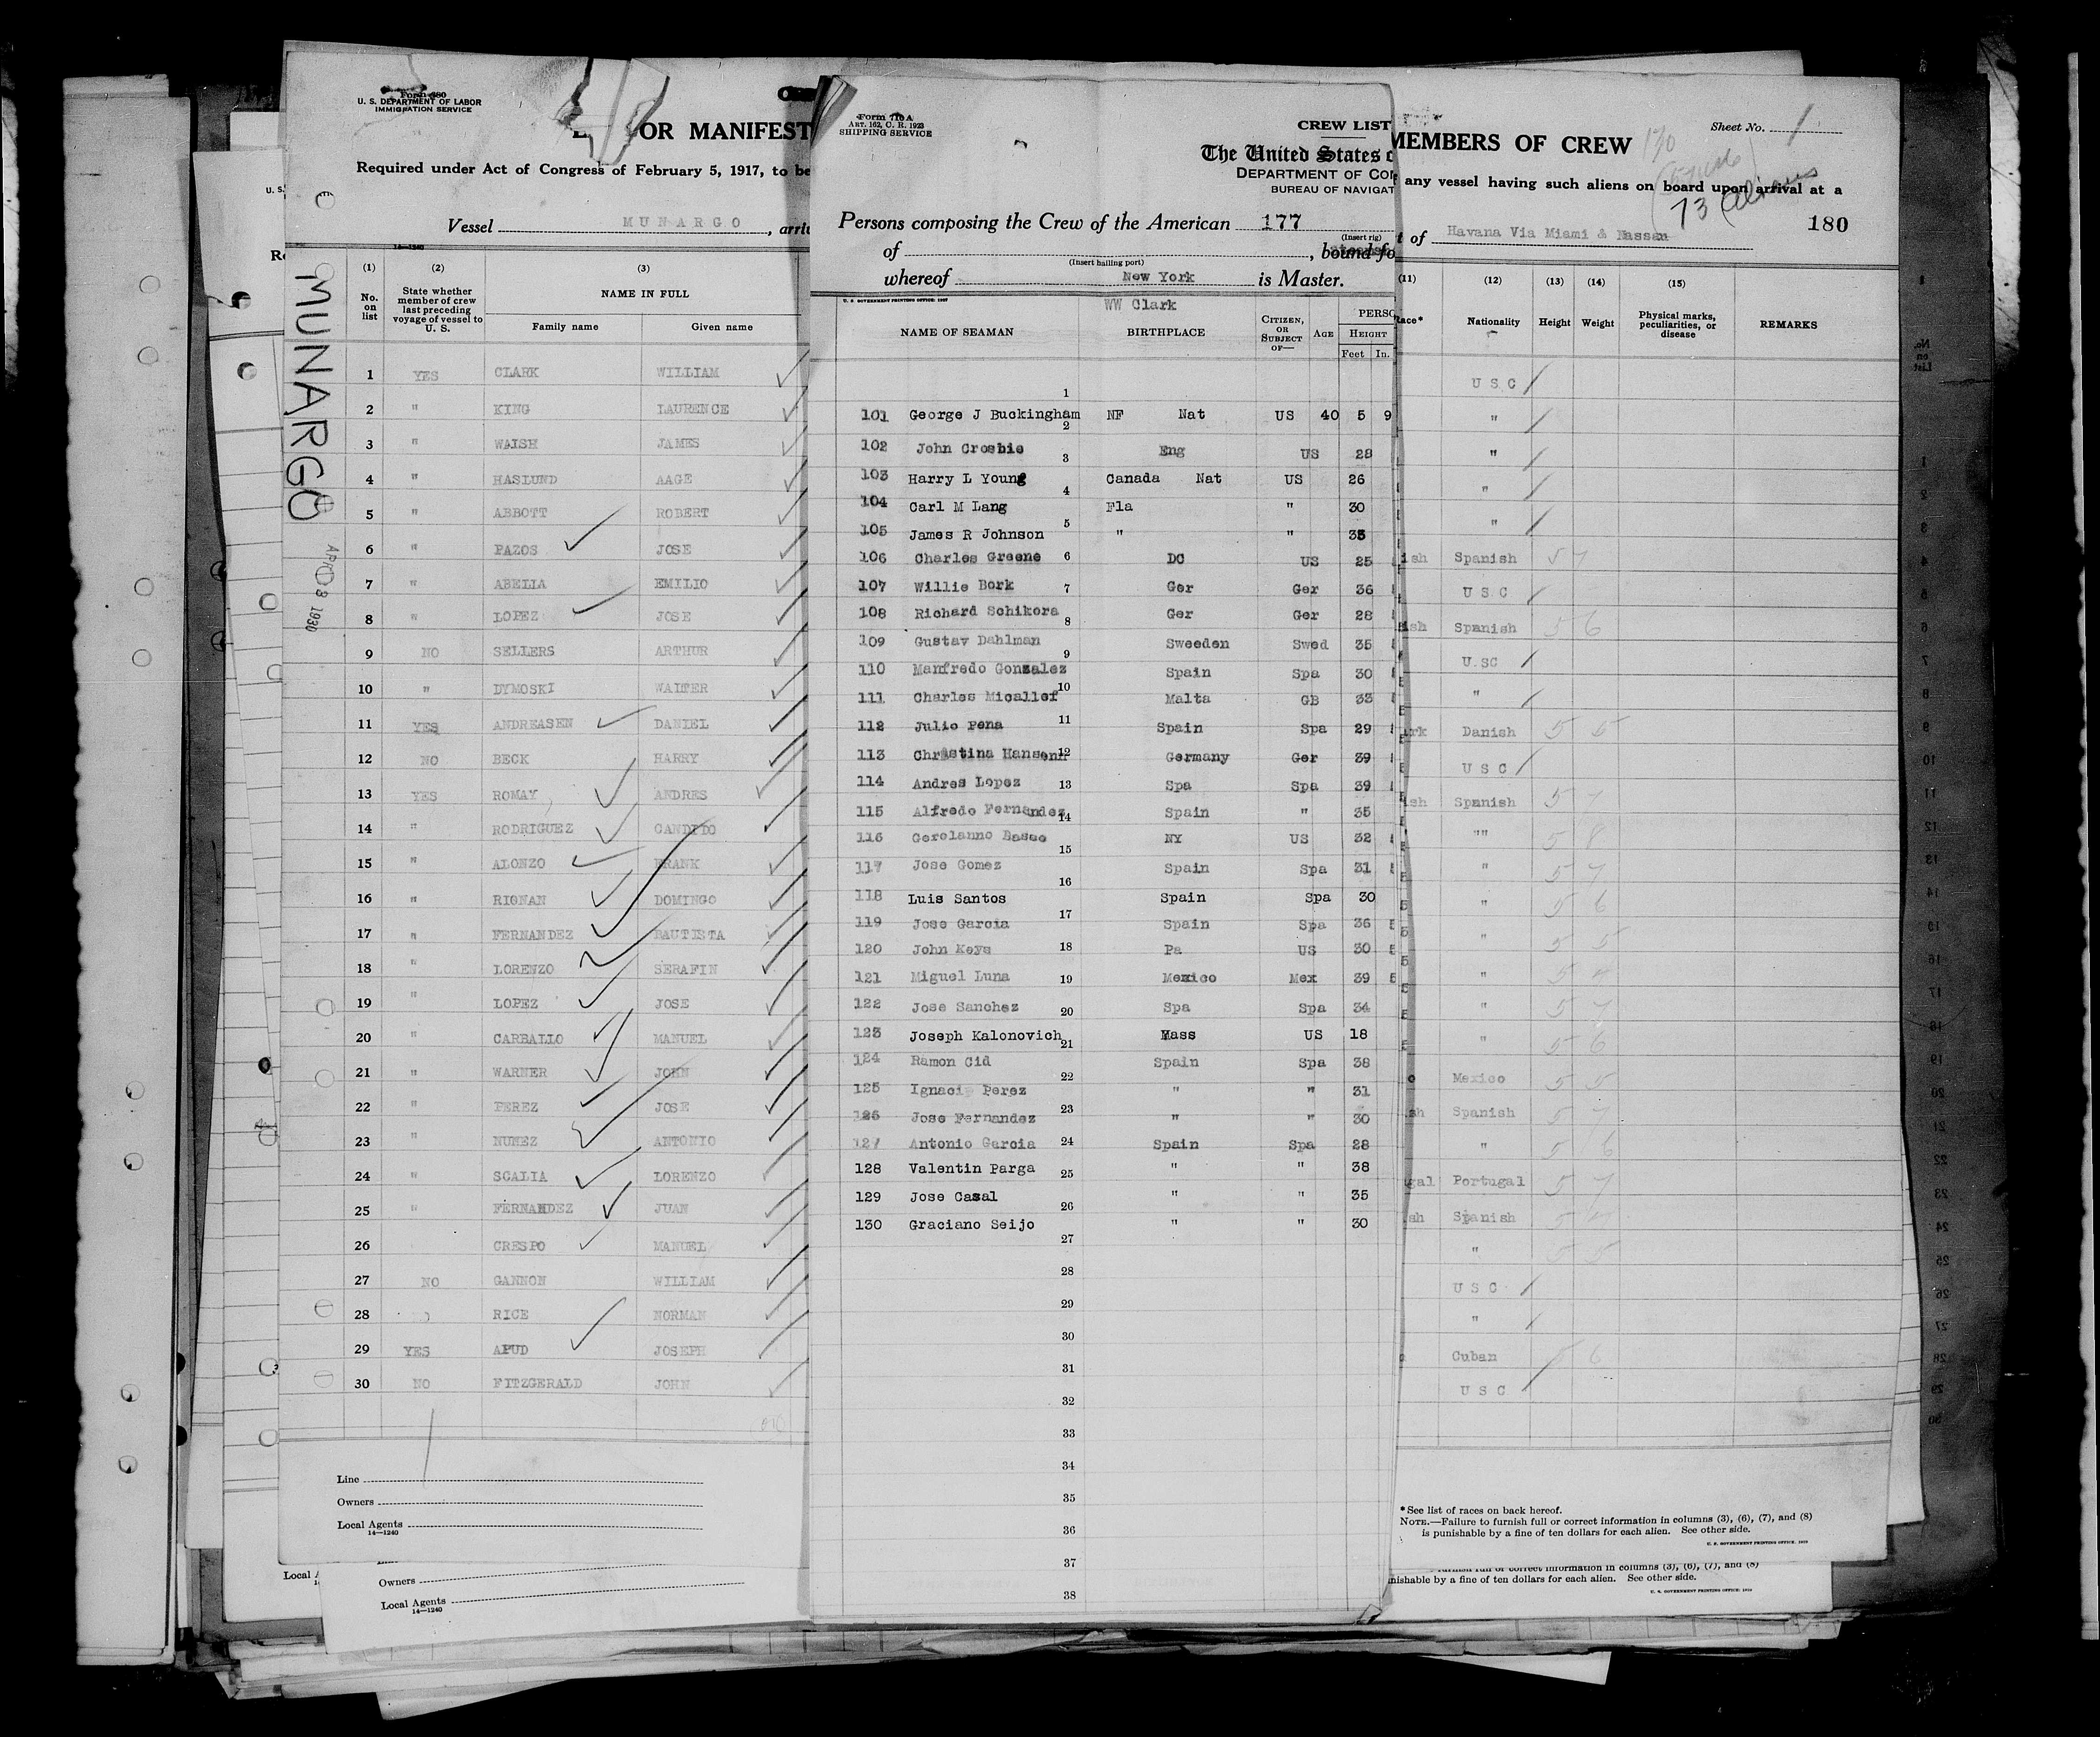 Form 680
U. S. DEPARTMENT OF LABOR
IMMIGRATION SERVICE
OR MANIFEST
Required under Act of Congress of February 5, 1917, to be
Vessel MUNARGO, arri
14—1240
MUNARGO
APR 3 1930
(1) (2) (3)
No. on list
State whether member of crew last preceding voyage of vessel to U. S.
NAME IN FULL
Family name Given name
1 YES CLARK WILLIAM
2 " KING LAURENCE
3 " WAISH JAMES
4 " HASLUND AAGE
5 " ABBOTT ROBERT
6 " PAZOS JOSE
7 " ABELIA EMILIO
8 " LOPEZ JOSE
9 NO SELLERS ARTHUR
10 " DYMOSKI WALTER
11 YES ANDREASEN DANIEL
12 NO BECK HARRY
13 YES ROMAY ANDRES
14 " RODRIGUEZ CANDIDO
15 " ALONZO FRANK
16 " RIONAN DOMINGO
17 " FERNANDEZ BAUTISTA
18 " LORENZO SERAFIN
19 " LOPEZ JOSE
20 " CARBALLO MANUEL
21 " WARNER JOHN
22 " PEREZ JOSE
23 " NUNEZ ANTONIO
24 " SCALIA LORENZO
25 " FERNANDEZ JUAN
26 CRESPO MANUEL
27 NO GANNON WILLIAM
28 RICE NORMAN
29 YES APUD JOSEPH
30 NO FITZGERALD JOHN
Line
Owners
Local Agents
14—1240
Owners
Local Agents
14—1240
Form 710 A
ART. 162, C. R. 1923
SHIPPING SERVICE
CREW LIST
The United States o
DEPARTMENT OF CO
BUREAU OF NAVIGAT
Persons composing the Crew of the American 177
(Insert rig)
of , bound fo
(Insert hailing port)
whereof New York is Master.
U. S. GOVERNMENT PRINTING OFFICE: 1927
WW Clark
NAME OF SEAMAN BIRTHPLACE CITIZEN, OR SUBJECT OF— AGE PERSO
HEIGHT
Feet In.
1
101 George J Buckingham NF Nat US 40 5 9
2
102 John Crosbie Eng US 28
3
103 Harry L Young Canada Nat US 26
4
104 Carl M Lang Fla " 30
5
105 James R Johnson " " 35
106 Charles Greene 6 DC US 25
107 Willie Bork 7 Ger Ger 36
108 Richard Schikora 8 Ger Ger 28
109 Gustav Dahlman 9 Sweeden Swed 35
110 Manfredo Gonzalez Spain Spa 30
111 Charles Micallef 10 Malta GB 33
112 Julio Pena 11 Spain Spa 29
113 Christina Hansenn 12 Germany Ger 39
114 Andres Lopez 13 Spa Spa 39
115 Alfredo Fernandez 14 Spain " 35
116 Gerolanno Basso 15 NY US 32
117 Jose Gomez 16 Spain Spa 31
118 Luis Santos Spain Spa 30
17
119 Jose Garcia Spain Spa 36 5
120 John Keys 18 Pa US 30 5
121 Miguel Luna 19 Mexico Mex 39 5
122 Jose Sanchez 20 Spa Spa 34
123 Joseph Kalonovich 21 Mass US 18
124 Ramon Cid 22 Spain Spa 38
125 Ignaci Perez " " 31
23
126 Jose Fernandez " " 30
127 Antonio Garcia 24 Spain Spa 28
128 Valentin Parga 25 " " 38
129 Jose Casal 26 " " 35
130 Graciano Seijo " " 30
27
28
29
30
31
32
33
34
35
36
37
38
MEMBERS OF CREW
Sheet No. 1
any vessel having such aliens on board upon arrival at a
73 Aliens
180
t of Havana Via Miami & Nassau
(11) (12) (13) (14) (15)
Race* Nationality Height Weight Physical marks, peculiarities, or disease REMARKS
U S C
"
"
"
"
ish Spanish 5 7
U S C
ish Spanish 5 6
U SC
"
ark Danish 5 6
U S C
ish Spanish 5 7
"" 5 8
" 5 7
" 5 6
" 5 5
" 5 4
" 5 7
" 5 6
o Mexico 5 5
sh Spanish 5 7
" 5 6
gal Portugal 5 7
sh Spanish 5
" 5 5
U S C
"
Cuban 5 6
U S C
*See list of races on back hereof.
NOTE.—Failure to furnish full or correct information in columns (3), (6), (7), and (8)
is punishable by a fine of ten dollars for each alien. See other side.
U. S. GOVERNMENT PRINTING OFFICE: 1929
furnish full or correct information in columns (3), (6), (7), and (8)
nishable by a fine of ten dollars for each alien. See other side.